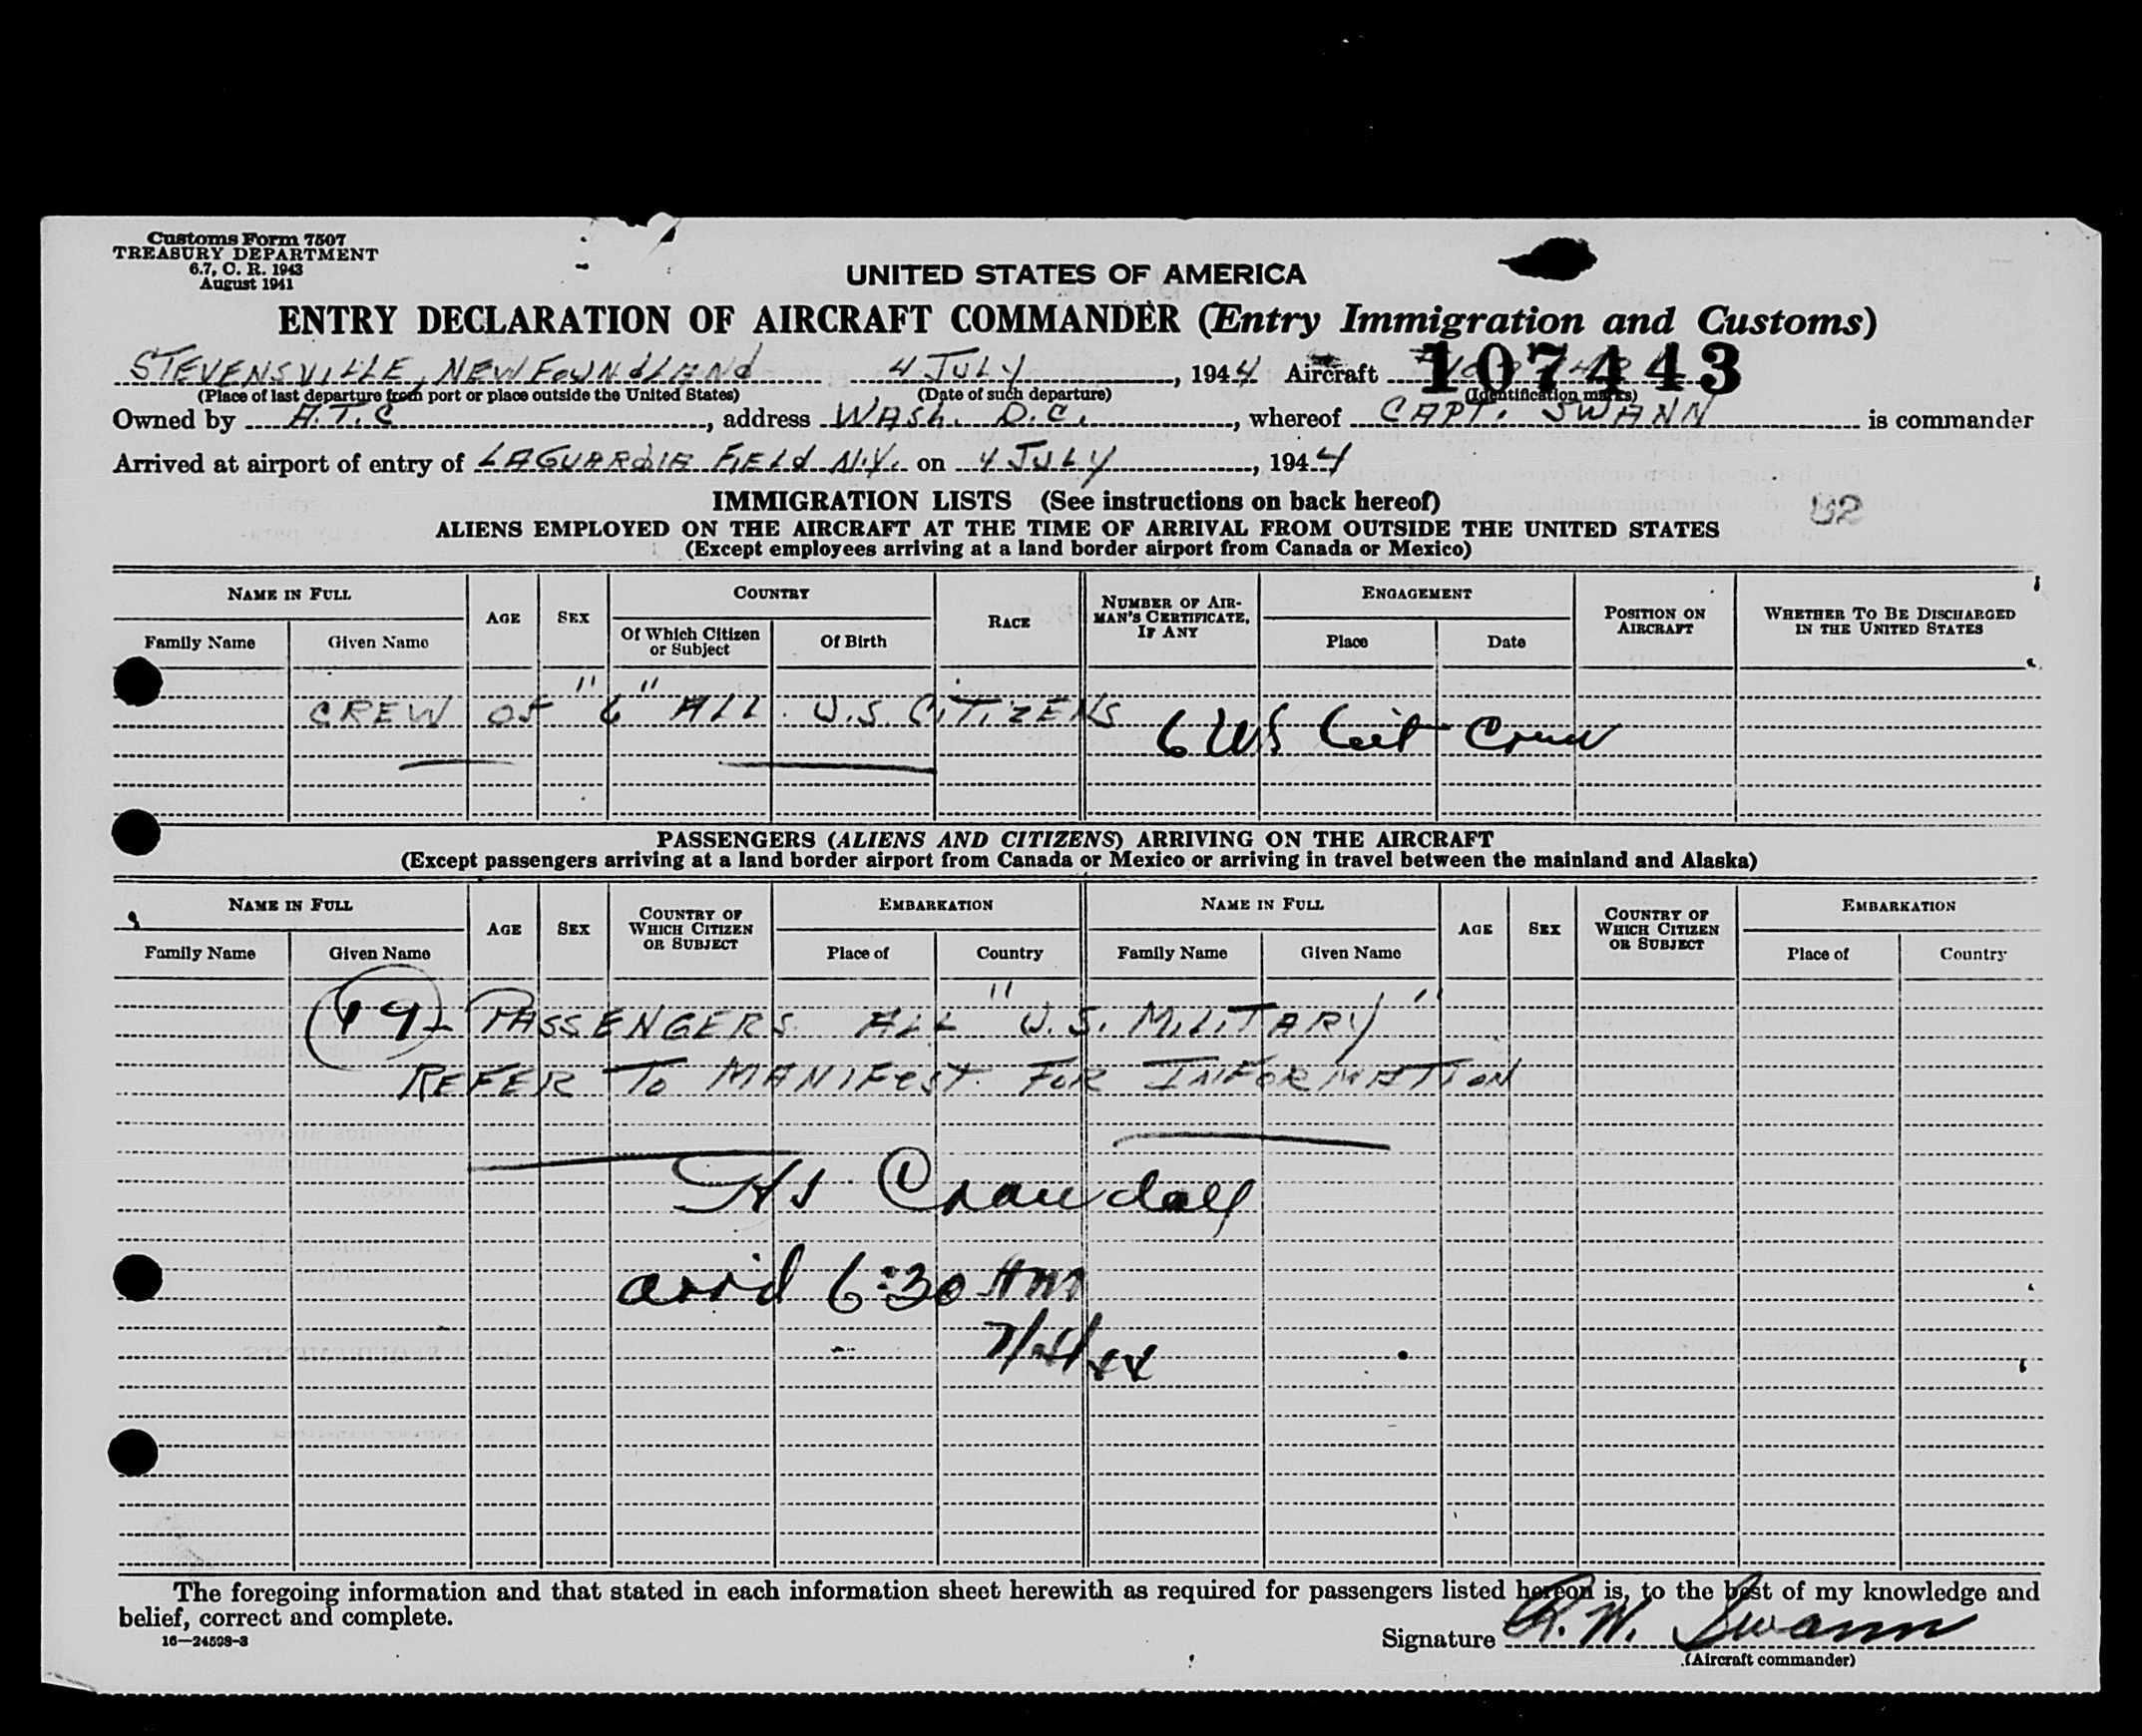 Customs Form 7507
TREASURY DEPARTMENT
6.7, C. R. 1943
August 1941
UNITED STATES OF AMERICA
ENTRY DECLARATION OF AIRCRAFT COMMANDER (Entry Immigration and Customs)
STEVENSVILLE, NEWFOUNDLAND 4 JULY, 1944 Aircraft 107443
(Place of last departure from port or place outside the United States) (Date of such departure) (Identification marks)
Owned by A.T.C., address WASH. D.C., whereof CAPT. SWANN is commander
Arrived at airport of entry of LAGUARDIA FIELD N.Y. on 4 JULY, 1944
IMMIGRATION LISTS (See instructions on back hereof)
ALIENS EMPLOYED ON THE AIRCRAFT AT THE TIME OF ARRIVAL FROM OUTSIDE THE UNITED STATES
(Except employees arriving at a land border airport from Canada or Mexico)
NAME IN FULL AGE SEX COUNTRY RACE NUMBER OF AIRMAN'S CERTIFICATE, IF ANY ENGAGEMENT POSITION ON AIRCRAFT WHETHER TO BE DISCHARGED IN THE UNITED STATES
Family Name Given Name Of Which Citizen or Subject Of Birth Place Date
CREW OF "6" ALL U.S. CITIZENS 6 US Cit Crew
PASSENGERS (ALIENS AND CITIZENS) ARRIVING ON THE AIRCRAFT
(Except passengers arriving at a land border airport from Canada or Mexico or arriving in travel between the mainland and Alaska)
NAME IN FULL AGE SEX COUNTRY OF WHICH CITIZEN OR SUBJECT EMBARKATION NAME IN FULL AGE SEX COUNTRY OF WHICH CITIZEN OR SUBJECT EMBARKATION
Family Name Given Name Place of Country Family Name Given Name Place of Country
19 PASSENGERS ALL "U.S. MILITARY"
REFER TO MANIFEST FOR INFORMATION
Crandall
arr'd 6:30 AM
7/4/44
The foregoing information and that stated in each information sheet herewith as required for passengers listed hereon is, to the best of my knowledge and
belief, correct and complete.
16—24598-3
Signature R. W. Swann
(Aircraft commander)